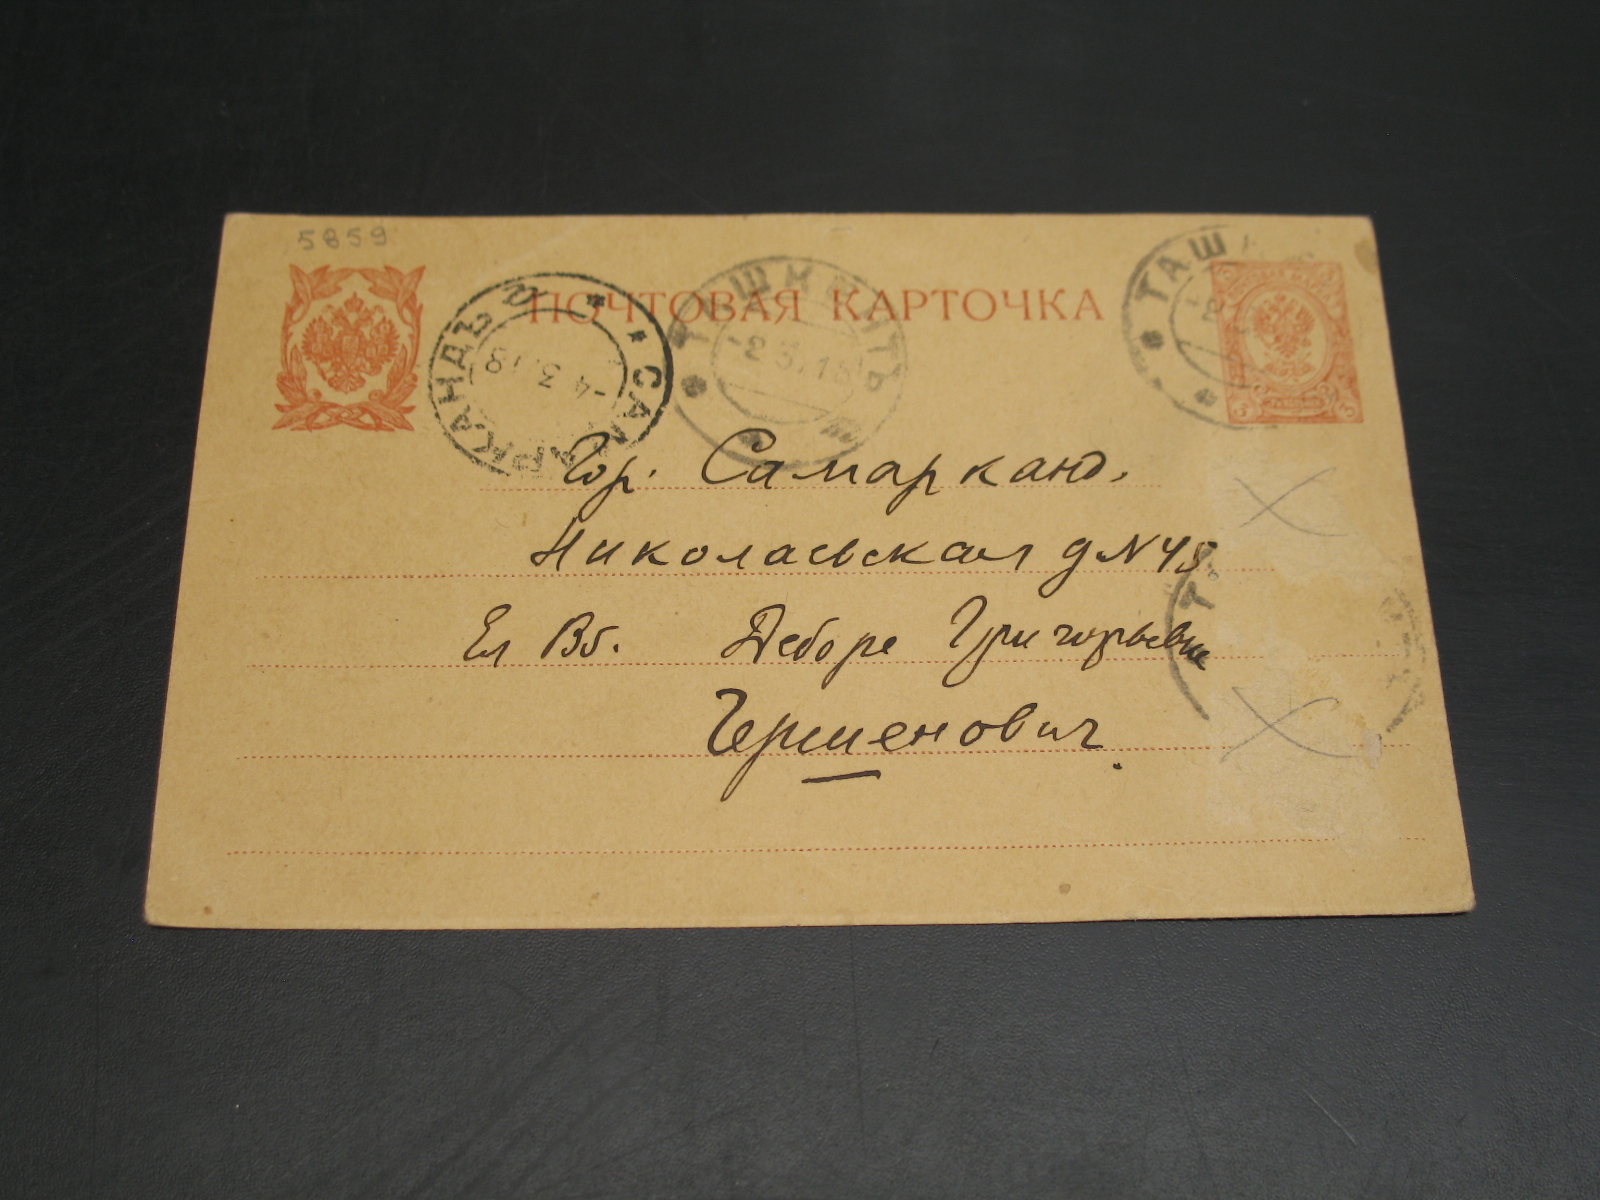 5859
ПОЧТОВАЯ КАРТОЧКА
САМАРКАНДЪ
-4.3.18
ТАШКЕНТЪ
-2.3.18
ТАШК
Гор. Самарканд.
Николаевская д N 45
Ел Вб. Деборе Григорьевне
Гершенович